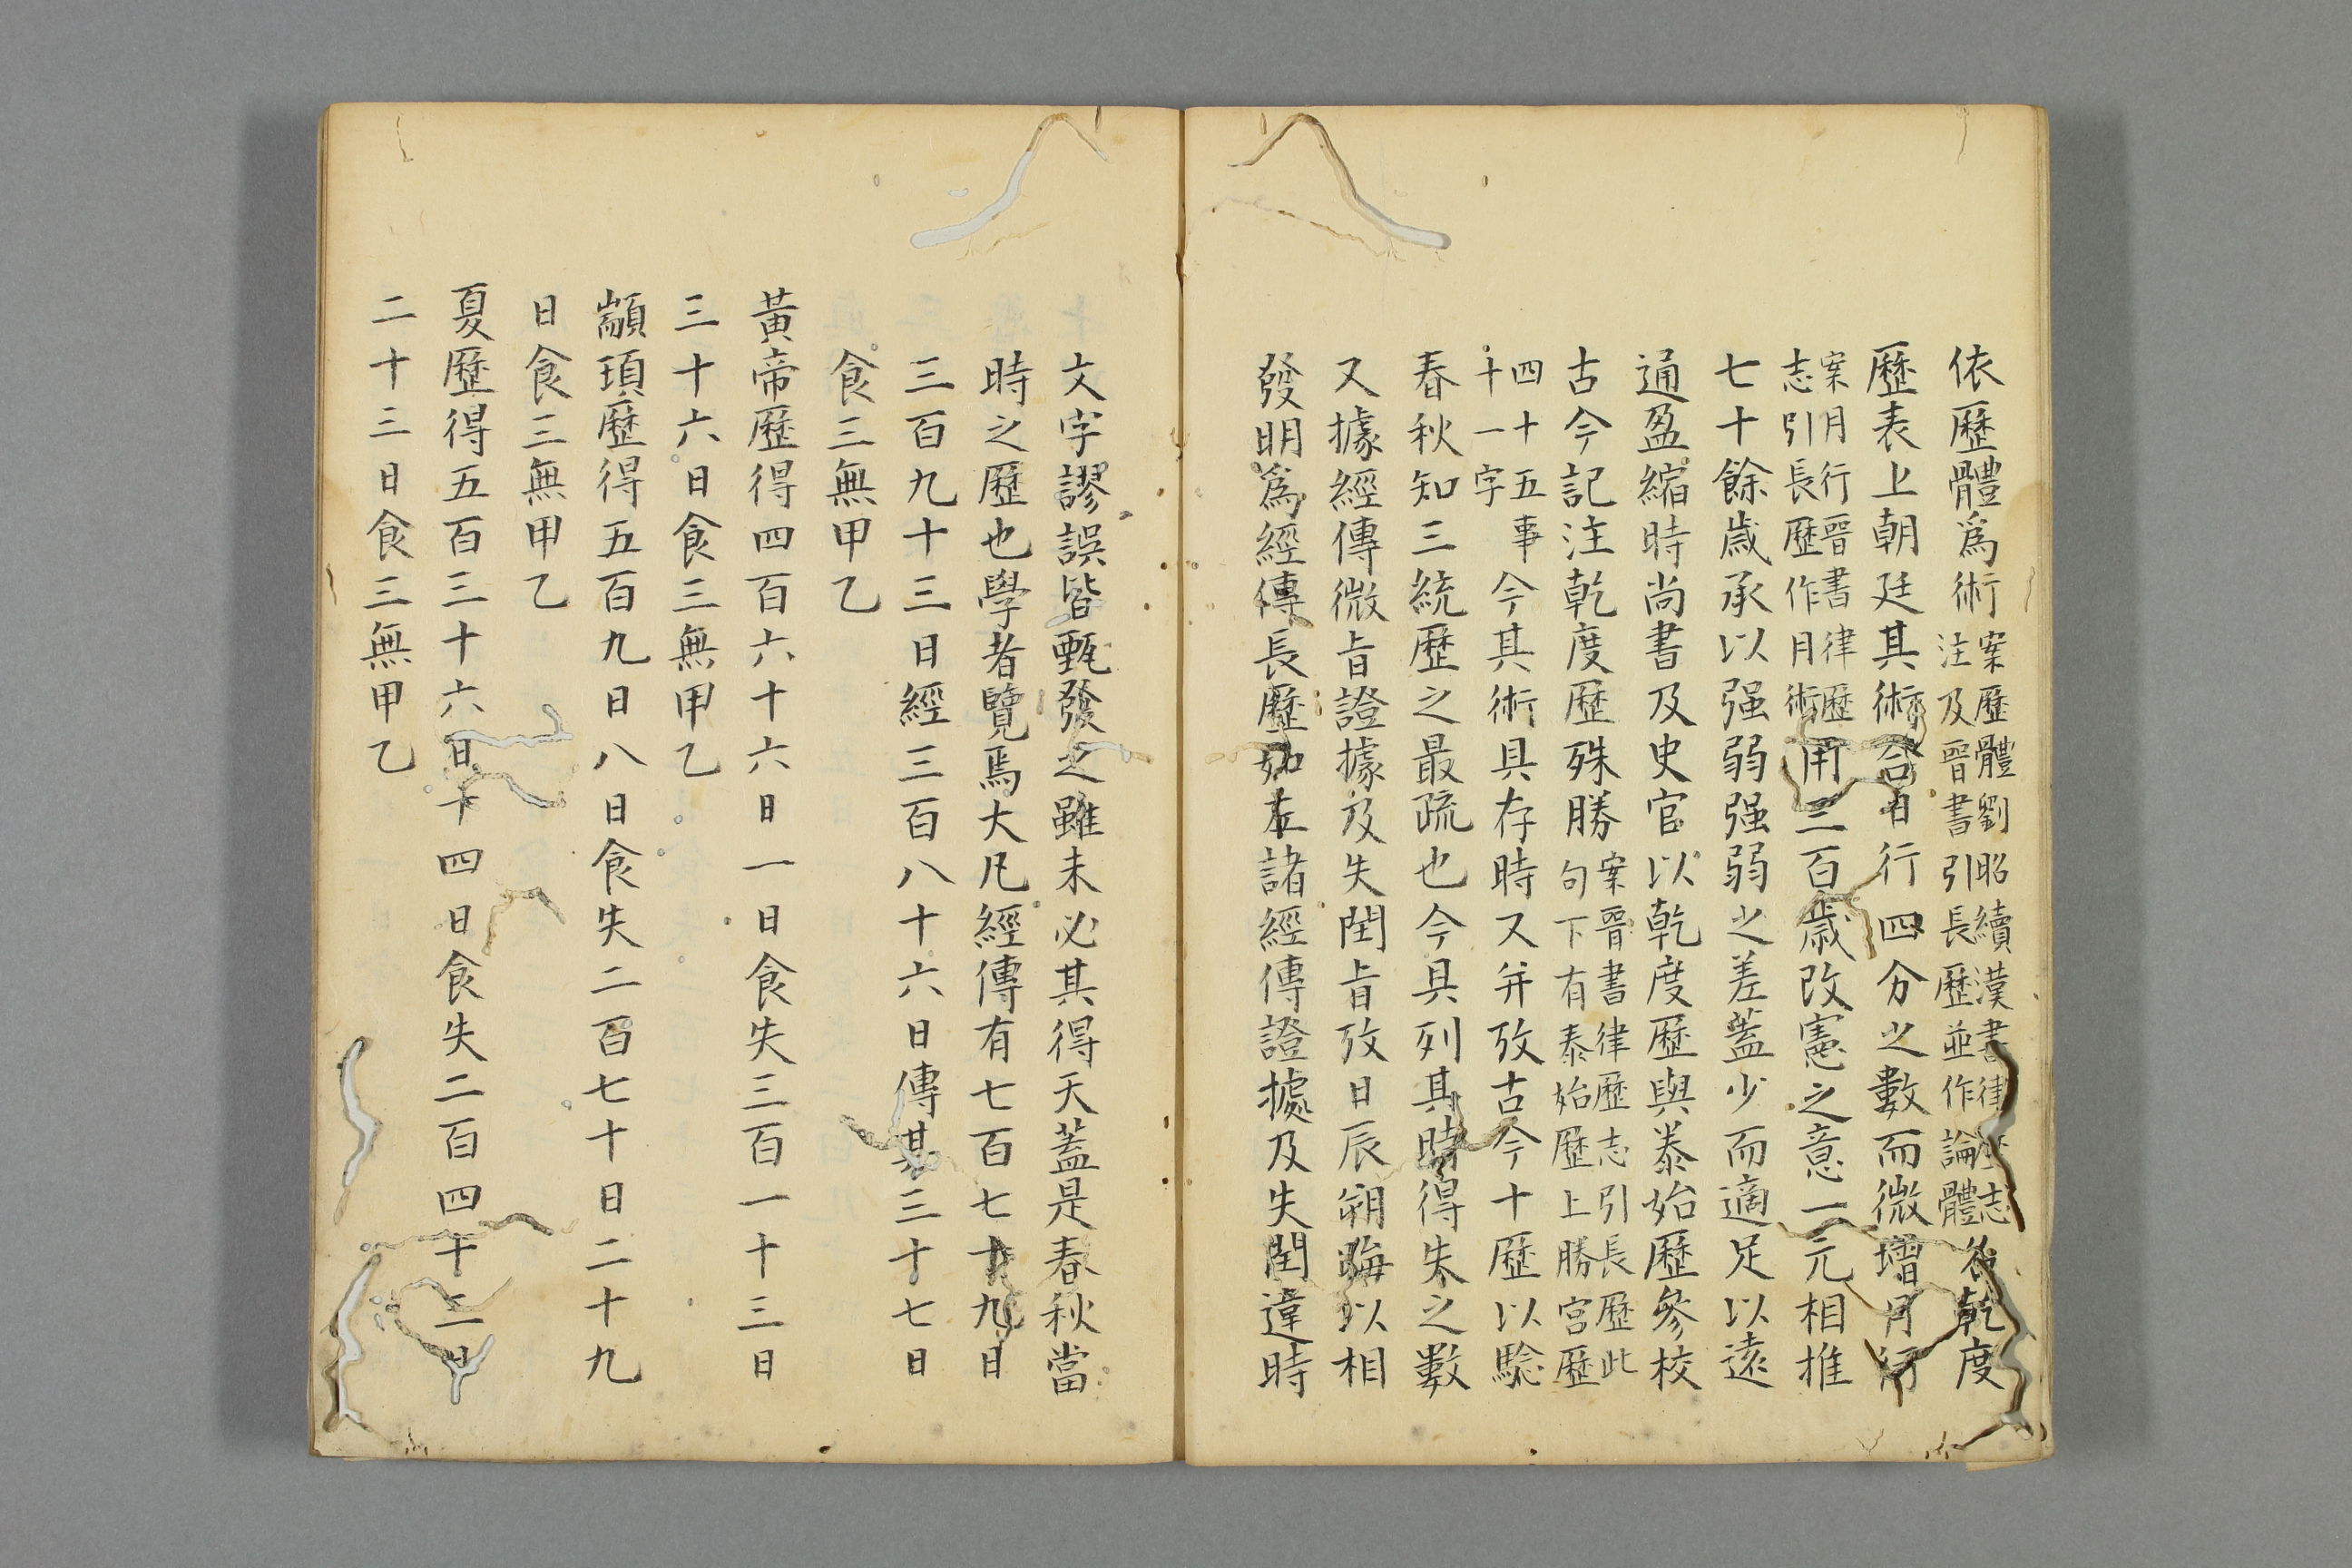 依歷體爲術案歷體劉昭續漢書律歷志注及晉書引長歷並作論體名乾度
歷表上朝廷其術合日行四分之數而微增月行
案月行晉書律歷志引長歷作月術用三百歲改憲之意二元相推
七十餘歲承以强弱强弱之差蓋少而適足以遠
通盈縮時尚書及史官以乾度歷與泰始歷參校
古今記注乾度歷殊勝案晉書律歷志引長歷此句下有泰始歷上勝宫歷
四十五事十一字今其術具存時又并攷古今十歷以驗
春秋知三統歷之最疏也今具列其時得失之數
又據經傳微旨證據及失閏旨攷日辰朔晦以相
發明爲經傳長歷如左諸經傳證據及失閏違時
文字謬誤皆甄發之雖未必其得天蓋是春秋當
時之歷也學者覽焉大凡經傳有七百七十九日
三百九十三日經三百八十六日傳其三十七日
食三無甲乙
黃帝歷得四百六十六日一日食失三百一十三日
三十六日食三無甲乙
顓頊歷得五百九日八日食失二百七十日二十九
日食三無甲乙
夏歷得五百三十六日十四日食失二百四十三日
二十三日食三無甲乙